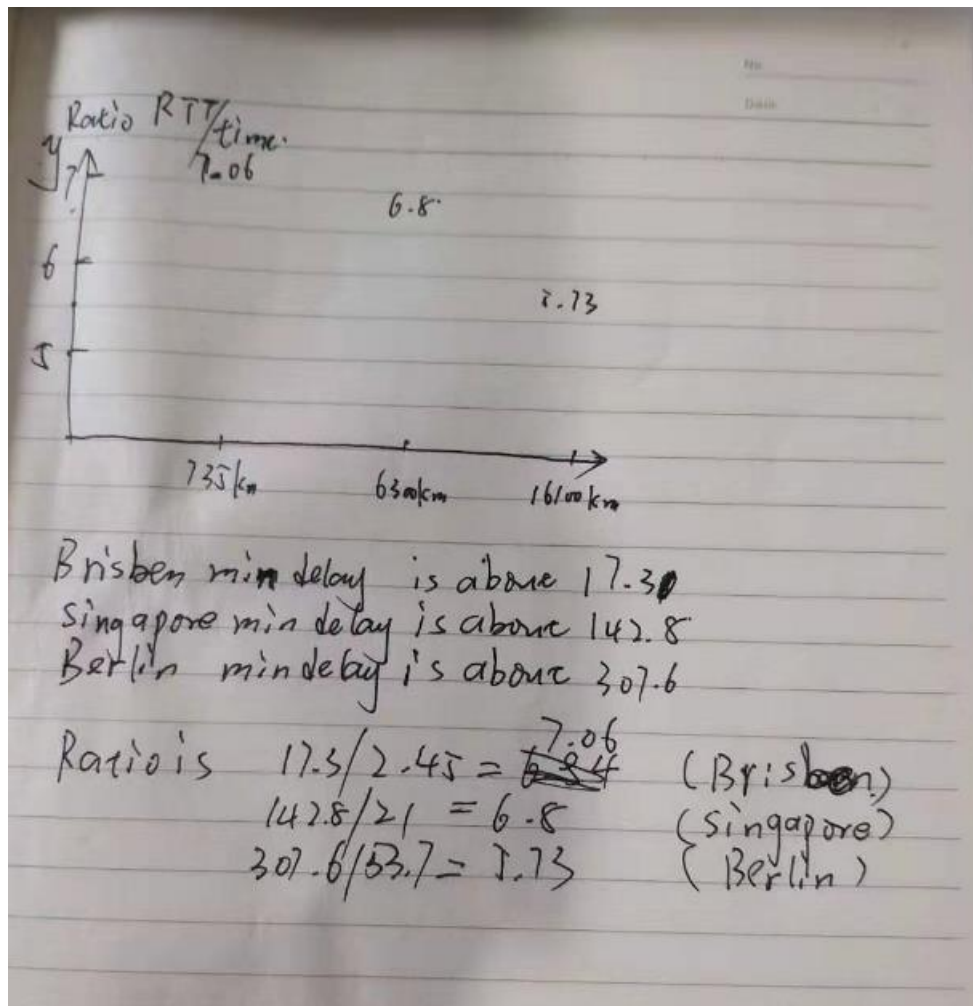 No.
Date
Ratio RTT/time.
y
7
7.06
6.8
6
5.73
5
735km
6300km
16100km
Brisben min delay is aboue 17.3
Singapore min delay is aboue 142.8
Berlin min delay is aboue 307.6
7.06
Ratio is 17.3/2.45 = (Brisben)
142.8/21 = 6.8 (Singapore)
307.6/53.7 = 5.73 (Berlin)